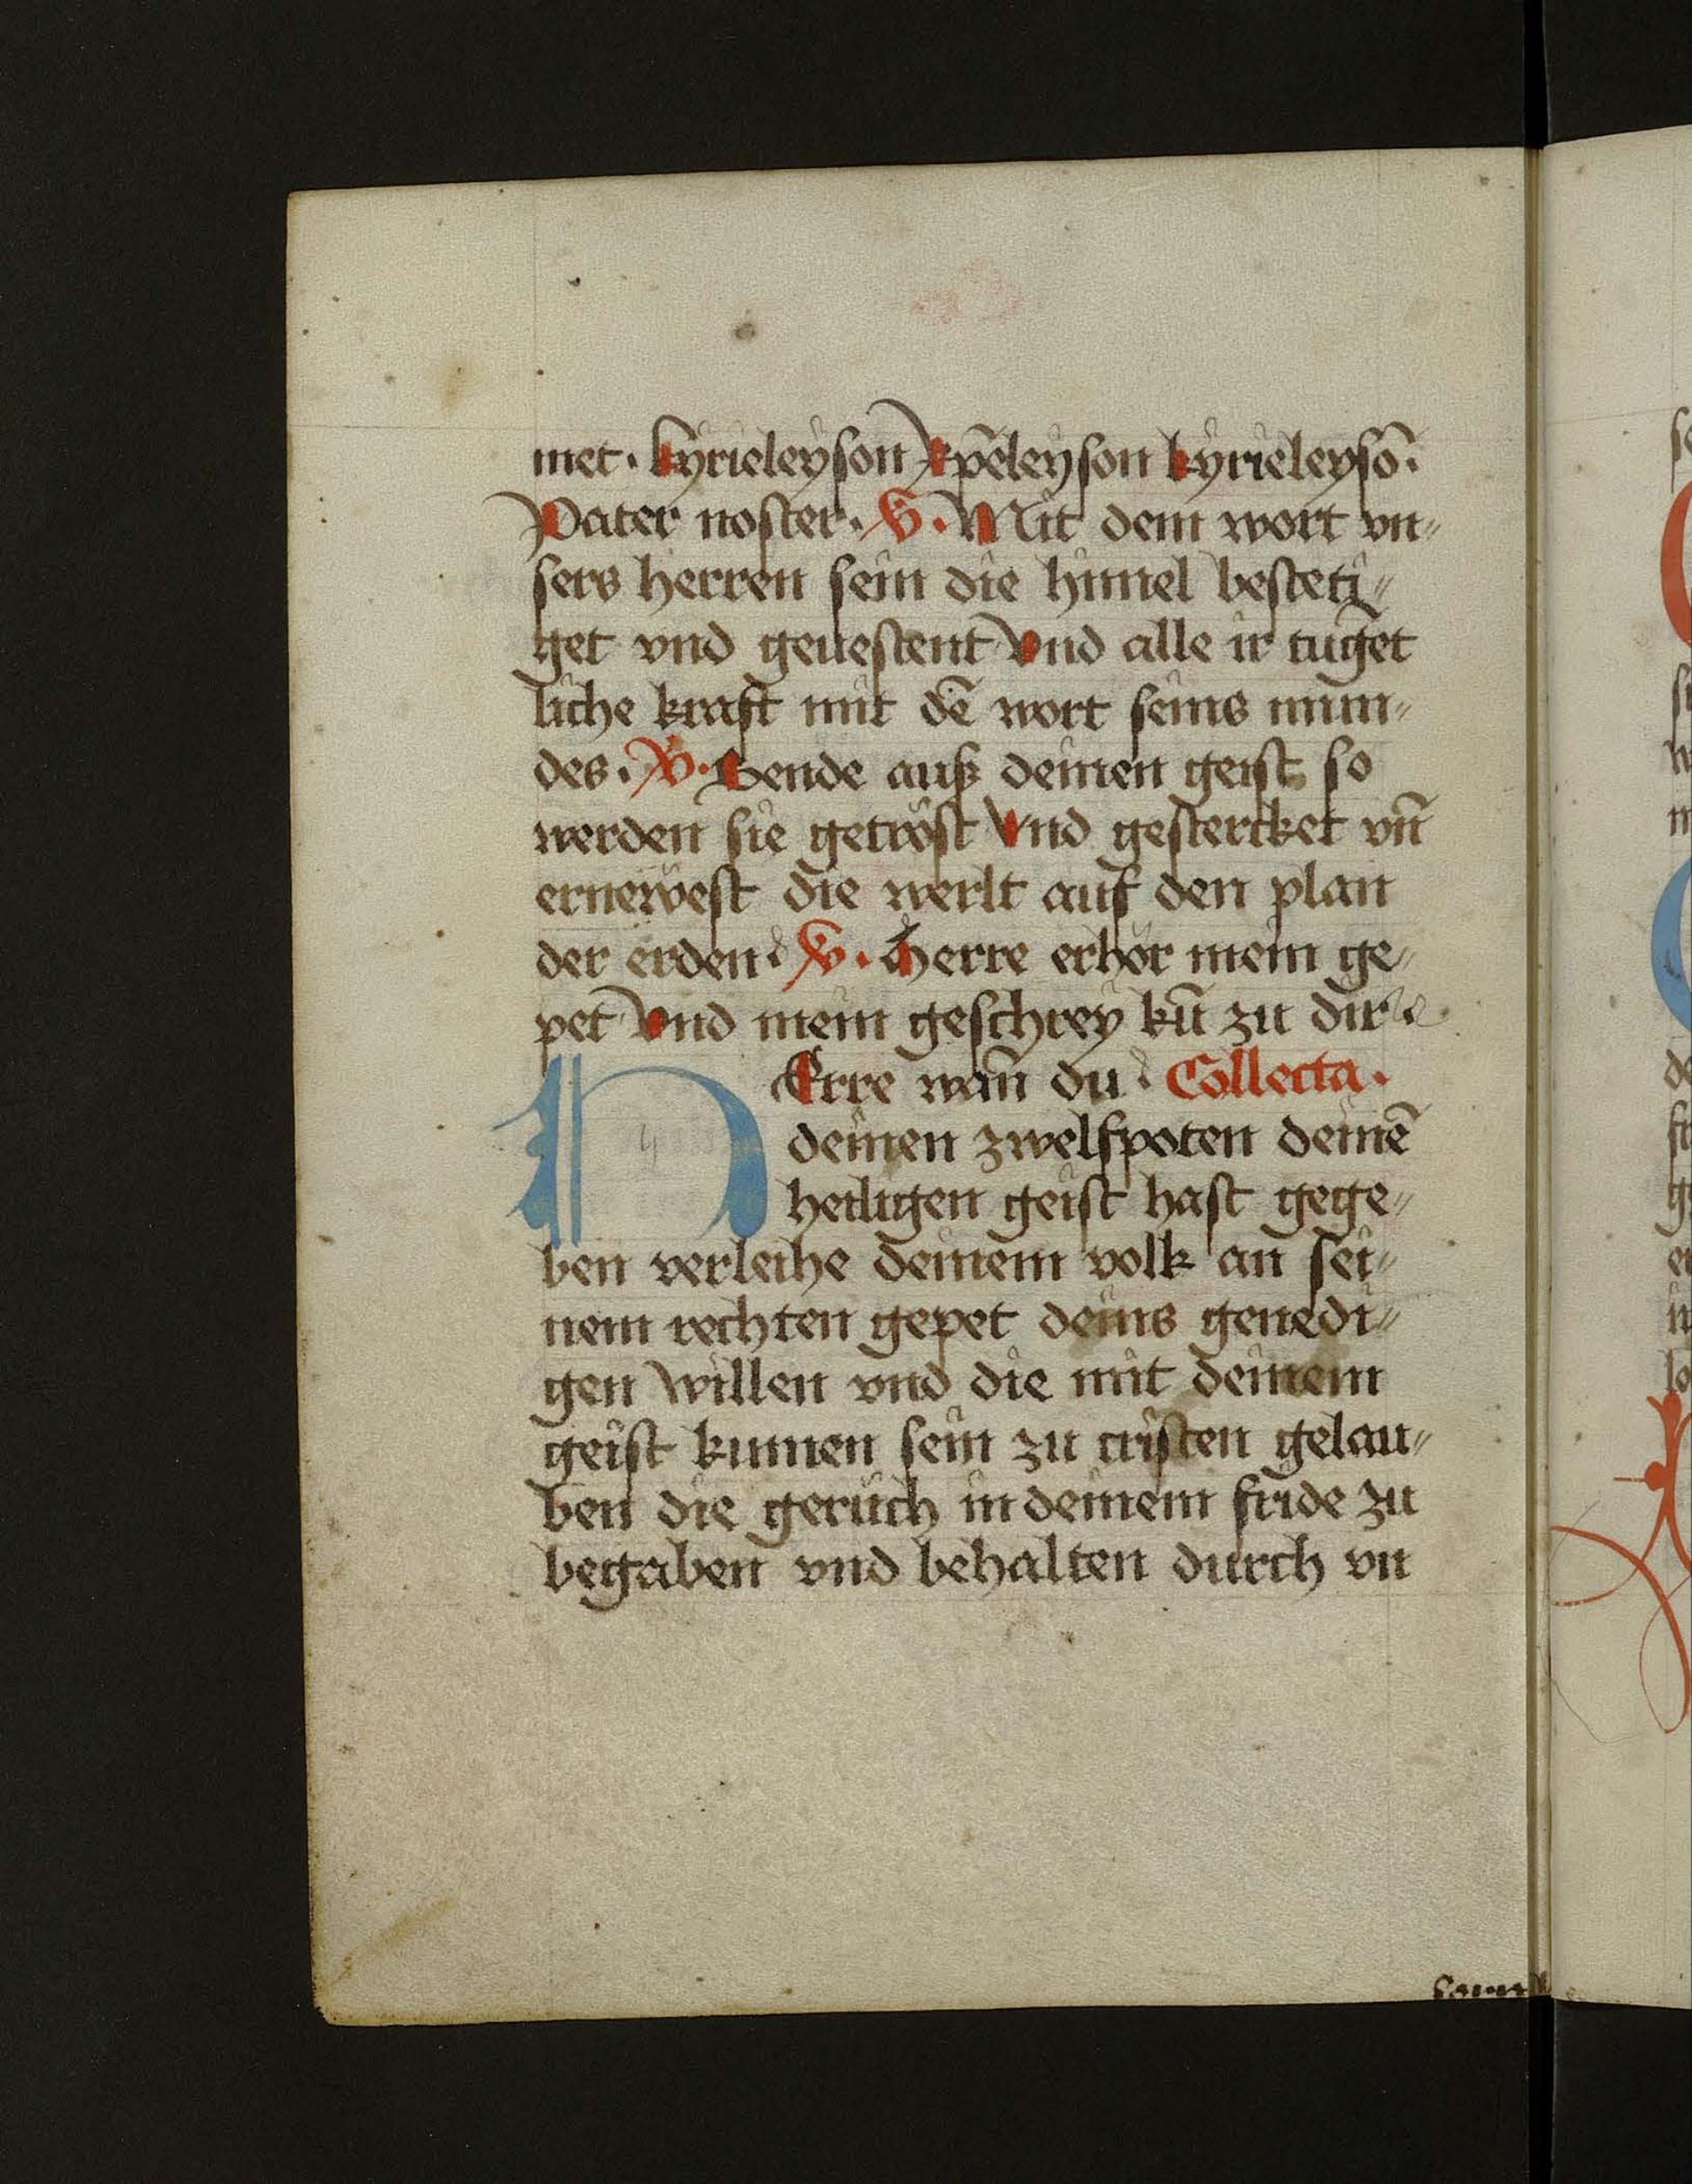 met. kyrieleyson xp̄eleyson kyrieleysō.
Pater noster. V. Mit dem wort vn⸗
sers herren sein die himel besteti⸗
get vnd geuestent Vnd alle ir tugēt
liche kraft mit dē wort seins mun⸗
des. V. Sende auß deinen geist so
werden sie getröst Vnd gestercket vn̄
ernewest die werlt auf den plan
der erden. V. Herre erhör mein ge⸗
pet Vnd mein geschrey kū zu dir
HErre wan̄ du. Collecta.
deinen zwelfpoten deinē
heiligen geist hast gege⸗
ben verleihe deinem volk an sei⸗
nem rechten gepet deins genedi⸗
gen willen vnd die mit deinem
geist kumen sein zu cristen gelau⸗
ben die geruch in deinem fride zu
begaben vnd behalten durch vn